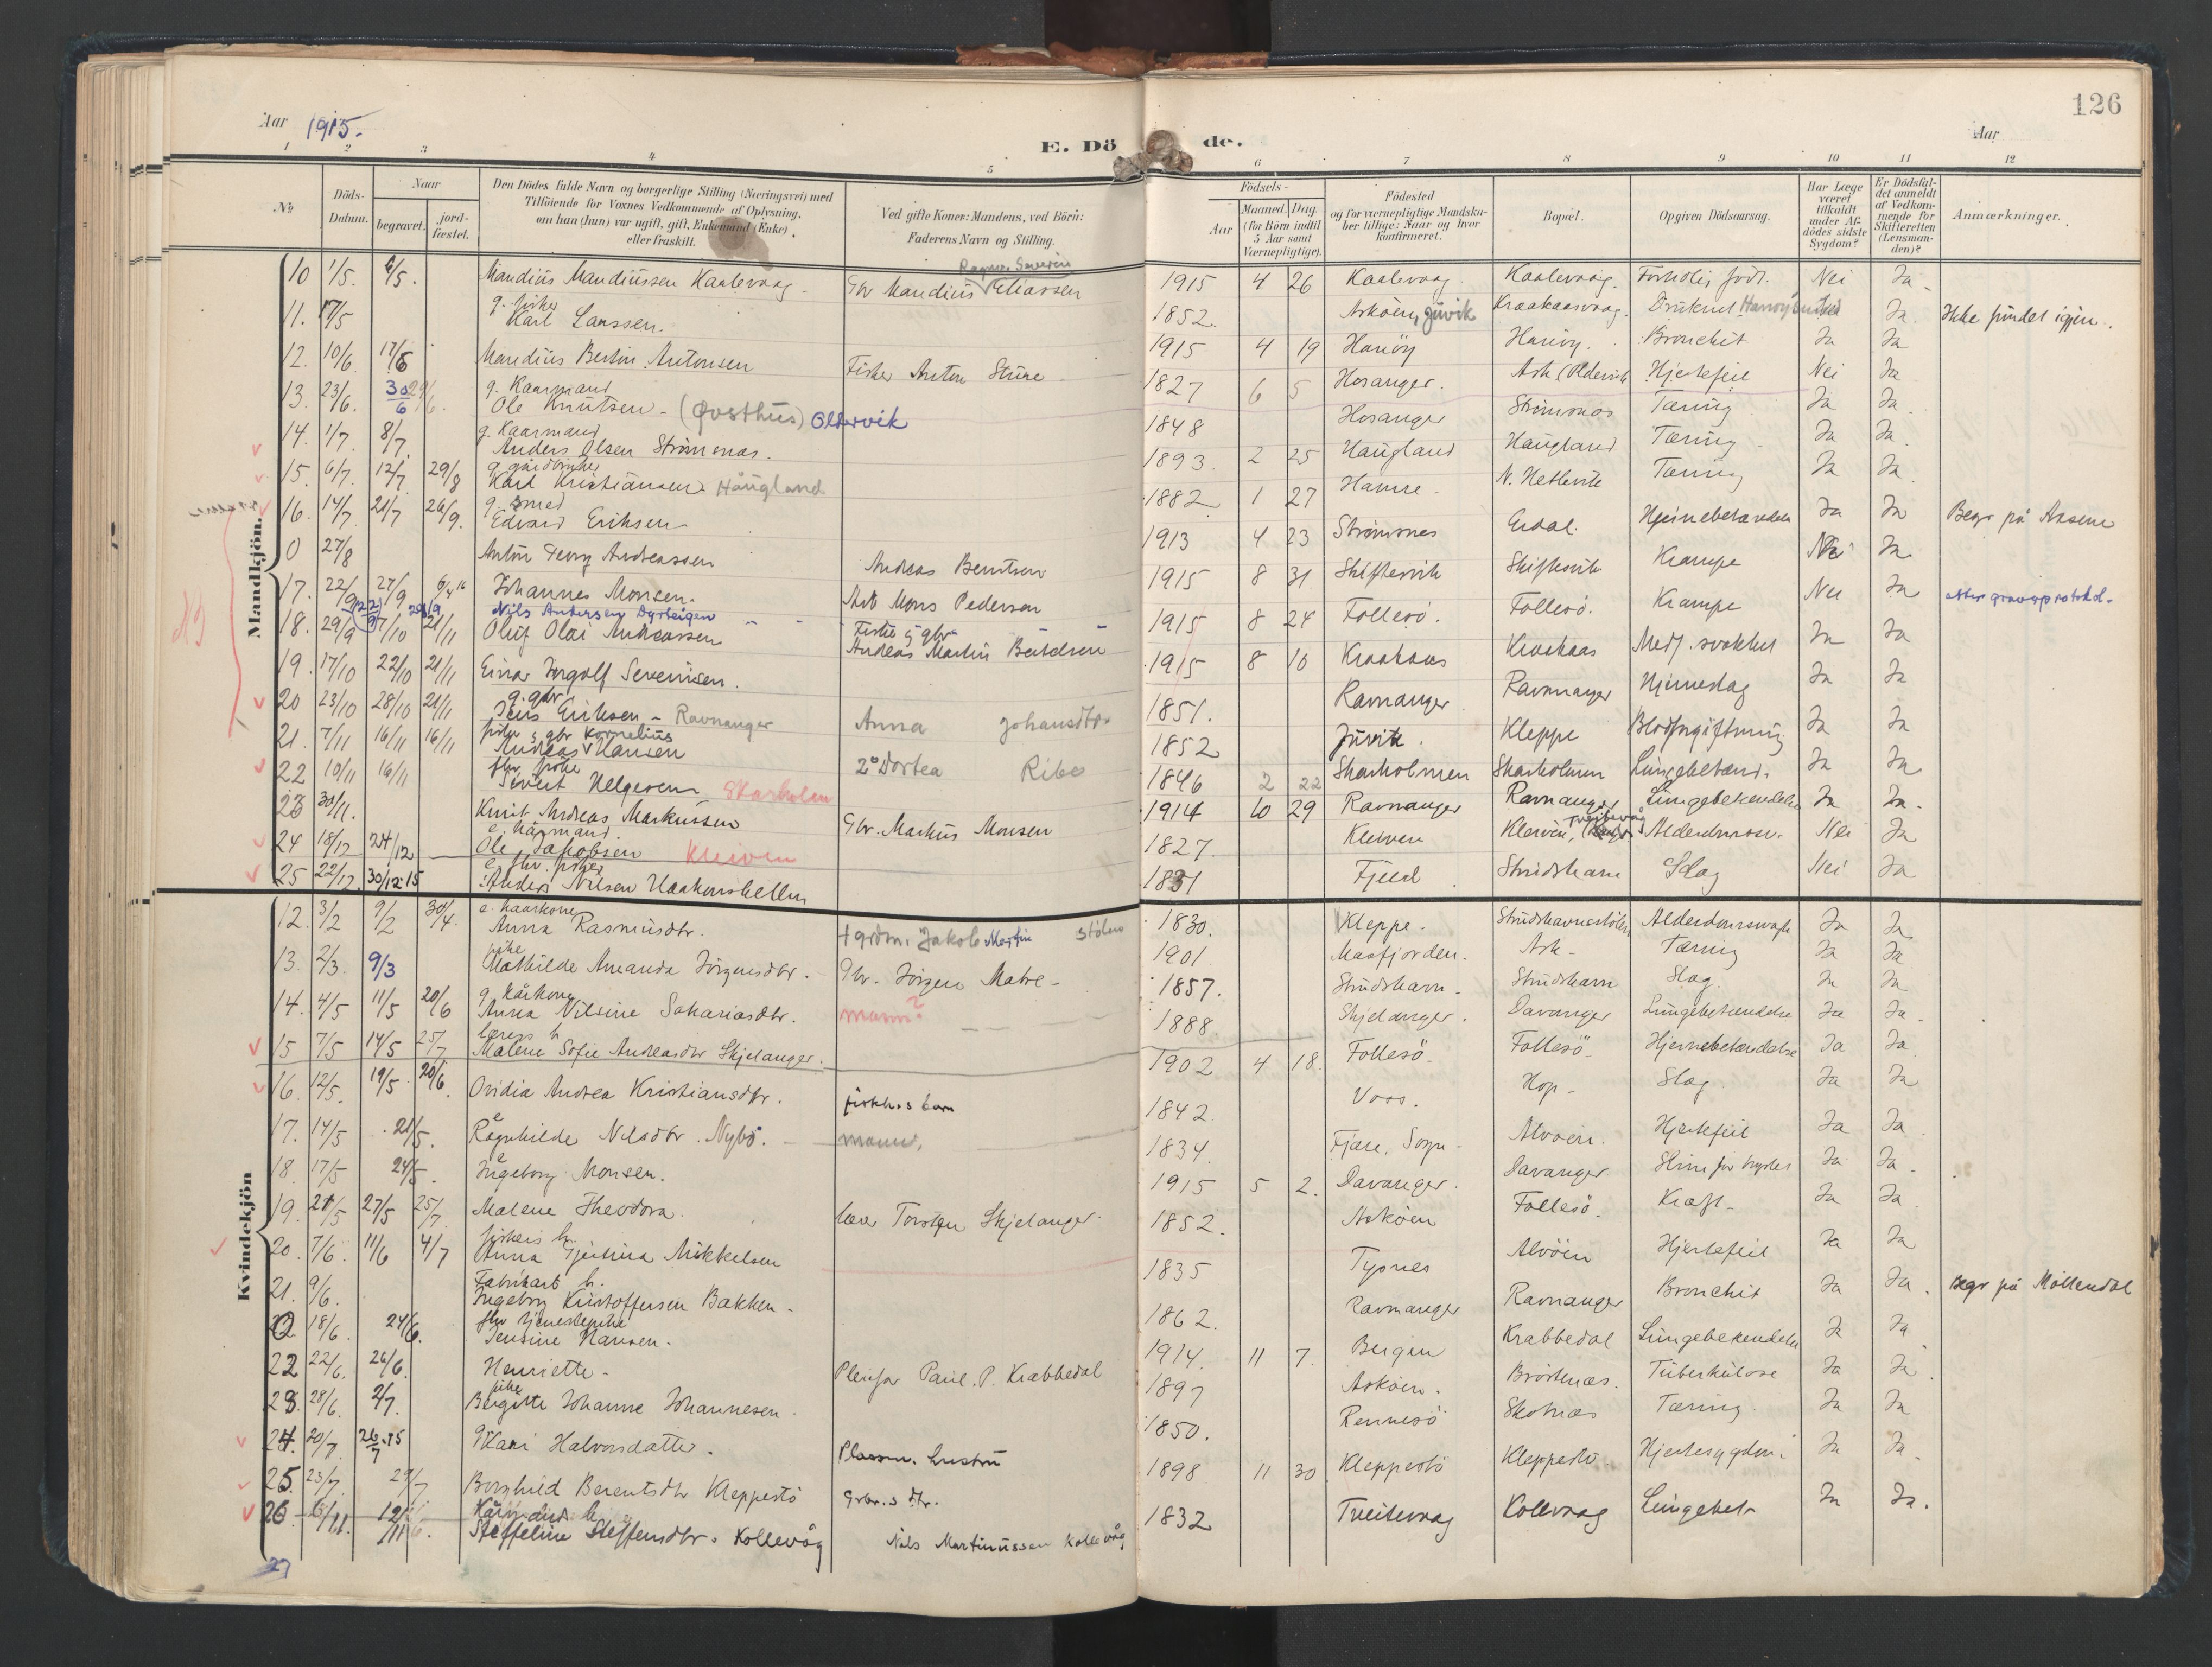 Aar 1915.
E. Döde.
Aar
126
1 2 3 4 5 6 7 8 9 10 11 12
No
Döds-Datum.
Naar
begravet.
jord-fæstet.
Den Dödes fulde Navn og borgerlige Stilling (Næringsvei) med
Tilföiende for Voxnes Vedkommende af Oplysning,
om han (hun) var ugift, gift, Enkemand (Enke)
eller fraskilt.
Ved gifte Koner: Mandens, ved Börn:
Faderens Navn og Stilling.
Födsels-
Aar
Maaned. Dag.
(for Börn indtil
5 Aar samt
Værnepligtige).
Födested
og for værnepligtige Mandska-
ber tillige: Naar og hvor
konfirmeret.
Bopæl.
Opgiven Dödsaarsag.
Har Læge
været
tilkaldt
under Af-
dödes sidste
Sygdom?
Er Dödsfal-
det anmeldt
af Vedkom-
mende for
Skifteretten
(Lensman-
den)?
Anmærkninger.
Mandkjön.
10 1/5. 6/5. Mandius Mandiussen Kaalevaag. Gbr Mandius Ragnv. Severin Eliassen 1915 4 26 Kaalevaag Kaalevaag. Nei Ja
11. 17/5 g. fisker Karl Larssen. 1852. Askøen, Juvik Kraakaasvaag. Druknet Ja Ikke fundet igjen.
12. 10/6 17/6 Mandius Bertin Antonsen Fisker Anton Sture 1915 4 19 Hanöy Hanöy. Bronchit Ja Ja
13. 23/6. 30/6 g. Kaarmand Ole Knutsen - (Øvsthus) Oldervik 1827 6 5 Hosanger. Ask (Oldervik Hjertefeil Nei Ja
14. 1/7. 8/7. g. Kaarmand Anders Olsen Strömsnæs. 1848 Hosanger Strömsnæs Tæring Ja Ja
15. 6/7. 12/7. 29/8 g. gårdbruker Karl Kristiansen Haugland 1893. 2 25 Haugland Haugland Tæring Ja Ja
16. 14/7. 21/7 26/9. g. smed Edvard Eriksen 1882 1 27 Hamre N. Hetlevik Tæring Ja Ja
0 27/8 Anton Georg Andreassen Andreas Berntsen 1913 4 23 Strömsnes Erdal. Hjernebetændelse Ja Ja Begr på Aasene
17. 22/9 27/9 6/4 16 Johannes Monsen. Arb Mons Pedersen 1915 8 31 Skiftesvik Skiftesvik Krampe Nei Ja
Nils Andersen Dyrteigen " " efter gravprotokol.
18. 29/9 7/10 21/11 Oluf Olai Andreassen Fisker g gbr Andreas Martin Bertelsen 1915 8 24 Follesö. Follesö. Krampe Nei Ja
19. 17/10 22/10 21/11 Einar Ingolf Severinsen. 1915 8 10 Kraakaas Kraakaas Medf. svakhet Ja Ja
20 23/10 28/10 21/11 g. gbr Jens Eriksen - Ravnanger Anna Johansdtr. 1851. Ravnanger Ravnanger Hjerneslag Ja Ja
21. 7/11 16/11 16/11 fisker g gbr Kornelius Andreas Hansen 1852 Juvik. Kleppe Blodforgiftning Ja Ja
22 10/11 16/11 fhv fisker Sivert Helgesen Skarholm 2° Dortea Ribe 1846 2 22 Skarholmen Skarholmen Lungebetænd. Ja Ja
23 30/11. Knut Andreas Markussen Gbr. Markus Monsen 1914 10 29 Ravnanger Ravnanger Lungebetændelse Ja Ja.
24 18/12 24/12 e. Kårmand. Ole Jakobsen Kleiven 1827. Kleiven Kleiven, Alderdomssv. Nei Ja
25 22/12. 30/12 15 e. fhv. fisker Anders Nilsen Haakonshellen 1831 Fjeld Strudshavn Slag Nei Ja
Kvindekjön
12. 3/2 9/2 30/4. e. kaarkone Anna Rasmusdtr. + grdm. Jakob Martin Stölen 1830. Kleppe. Strudshavnsstölen Alderdomssvagh Ja Ja
13. 2/3. 9/3 pike Mathilde Amanda Jörgensdtr. Gbr. Jörgen Matre 1901 Masfjorden. Ask Tæring Ja Ja
14. 4/5 11/5 20/6 g. Kårkone Anna Nilsine Sakariasdtr. mann? 1857. Strudshavn. Strudshavn Slag. Ja Ja
15 7/5 14/5 25/7 læress h Malene Sofie Andreasdtr Skjelanger. 1888. Skjelanger. Davanger Lungebetændelse Ja Ja
16. 12/5. 19/5 20/6. Ovidia Andrea Kristiansdtr. fiskh.s barn 1902 4 18. Follesö Follesö Hjernebetændelse Ja Ja
17. 14/5 21/5. e Ragnhilde Nilsdtr. Nybö. mann. 1842. Voss. Hop Slag. Ja Ja
18. 17/5 24/5. e Ingeborg Monsen. 1834. Fjære, Sogn Alvøen. Hjertefeil Ja Ja
19. 21/5 27/5 25/7. Malene Theodora. lærer Torsten Skjelanger 1915 5 2. Davanger. Davanger Ja Ja.
20. 7/6. 11/6 4/7 fiskers h. Anna Gjertina Mikkelsen 1852. Askøen Follesö. Kræft Ja Ja
21. 9/6. Fabrikarb h. Ingeborg Kristoffersen Bakken. 1835 Tysnes Alvöen Hjertefeil Ja Ja
0 18/6. 24/6. fhv tjenestepike Jensine Hansen. 1862. Ravnanger Ravnanger Bronchit Ja Ja. Begr på Möllendal
22 22/6. 26/6. Henriette. Plenfar Paul. P. Krabbedal 1914. 11 7. Bergen Krabbedal Lungebetændelse Ja Ja
23. 28/6. 2/7. pike Bergitte Johanne Johannesen. 1897 Askøen. Tuberkulose Ja Ja
24. 20/7 26/7 15 g Kari Halvorsdatter. Plassm. hustru 1850. Rennesö Skotnæs Tæring Ja Ja
25. 23/7. 27/7 Borghild Berentsdtr Kleppestö Grbr.s dtr. 1898 11 30 Kleppestö Kleppestö Hjertesygdom Ja Ja
26. 6/11. 12/11 Kårmands h. Steffeline Steffensdtr. Kollevåg Nils Martinussen Kollevåg 1832 Treitevaag Kollevaag Lungebet. Ja Ja.
27